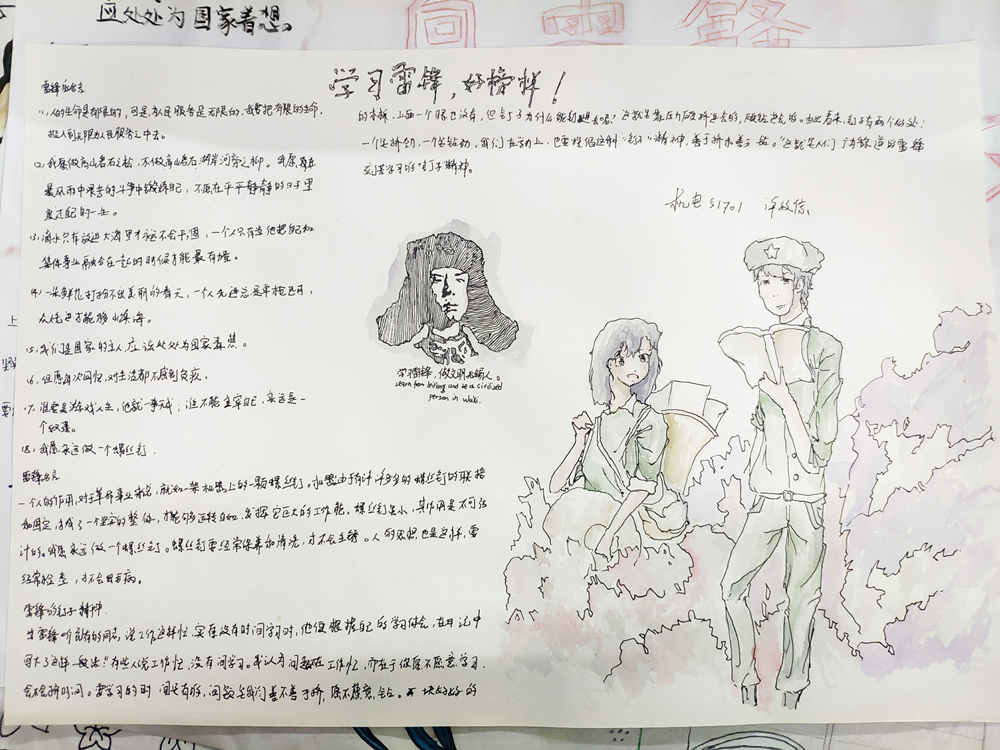 应处处为国家着想。
学习雷锋,好榜样!
雷锋名言
(1),人的生命是有限的,可是,为人民服务是无限的,我要把有限的生命,
投入到无限为人民服务之中去。
(2)我愿做高山岩石之松,不做湖岸河旁之柳。我愿在
暴风雨中艰苦的斗争中锻炼自己,不愿在平平静静的日子里
度过自己的一生。
(3),滴水只有放进大海里才永远不会干涸,一个人只有当他把自己和
集体事业融合在一起的时候才能最有力量。
(4)一朵鲜花打扮不出美丽的春天,一个人先进总是单枪匹马,
众人先进才能移山填海。
(5),我们是国家的主人,应该处处为国家着想。
(6),但愿每次回忆,对生活都不感到负疚,
(7),谁要是游戏人生,他就一事无成;谁不能主宰自己,永远是一
个奴隶。
(8),我愿永远做一个螺丝钉.
雷锋名言
一个人的作用,对于革命事业来说,就如一架机器上的一颗螺丝钉。机器由于有许许多多的螺丝钉的联接
和固定,才成了一个坚实的整体,才能够运转自如,发挥它巨大的工作能,螺丝钉虽小,其作用是不可估
计的。我愿永远做一个螺丝钉。螺丝钉要经常保养和清洗,才不会生锈。人的思想也是这样,要
经常检查,才不会出毛病。
雷锋的钉子精神.
当雷锋听到有的同志,说工作这样忙,实在没有时间学习时,他便根据自己的学习体会,在日记中
写下了这样一段话:"有些人说工作忙,没有时间学习。我认为问题不在工作忙,而在于你愿不愿意学习,
会不会挤时间。要学习的时间是有的,问题是我们善不善于挤,愿不愿意钻。一块好好的
的木板,上面一个眼也没有,但钉子为什么能钉进去呢?这就是靠压力硬挤进去的,硬钻进去的。由此看来,钉子有两个好处:
一个是挤劲,一个是钻劲,我们在学习上,也要提倡这种"钉子"精神,善于挤和善于钻。"这就是人们广为称道的雷锋
刻苦学习的"钉子"精神。
机电51701
学习雷锋,做文明无锡人。
Learn from leifeng and be a civilized
person in Wuxi.